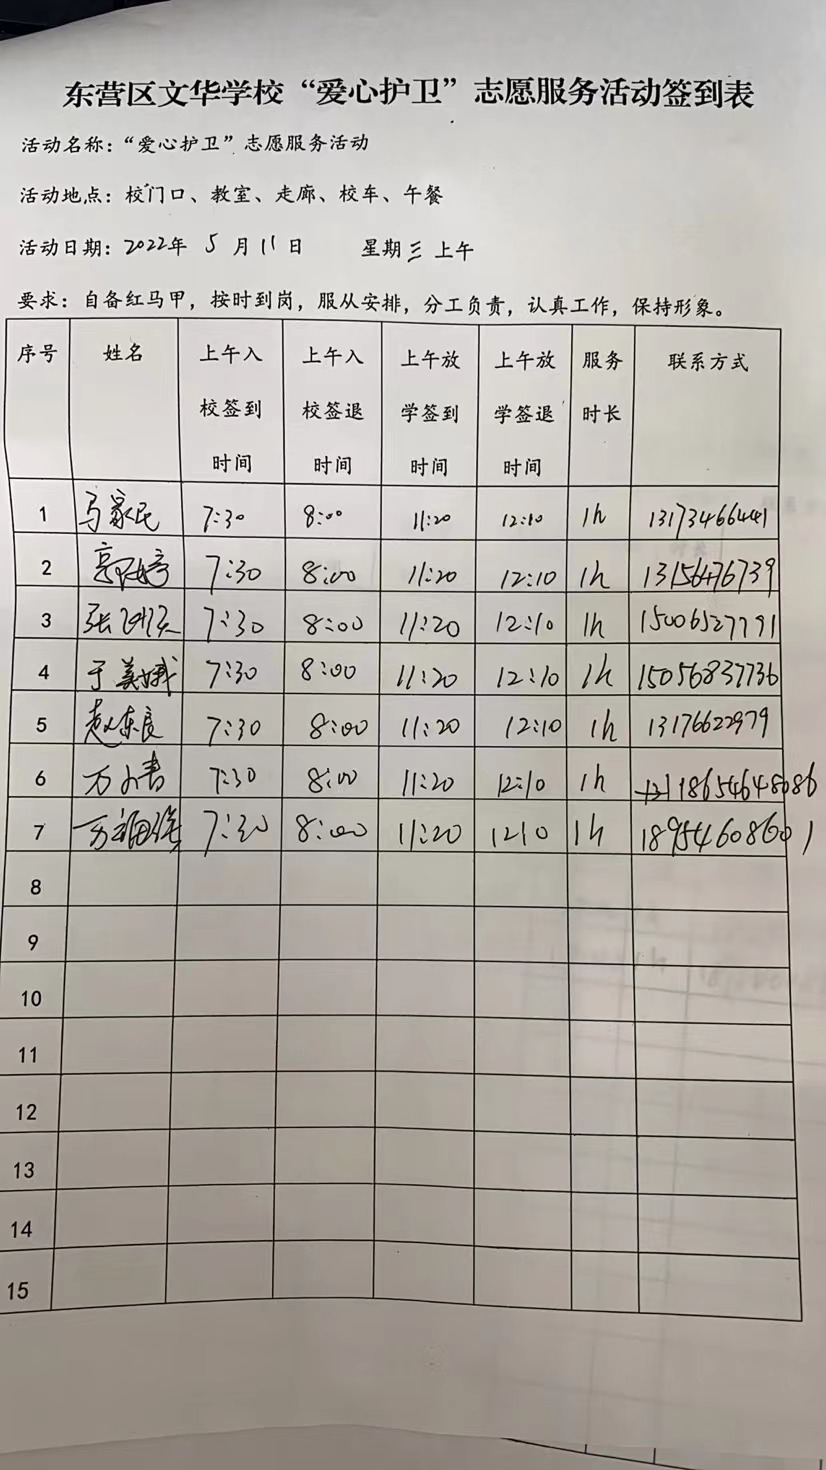 东营区文华学校“爱心护卫”志愿服务活动签到表
活动名称：“爱心护卫”志愿服务活动
活动地点：校门口、教室、走廊、校车、午餐
活动日期：2022年 5 月 11 日 星期三 上午
要求：自备红马甲，按时到岗，服从安排，分工负责，认真工作，保持形象。
序号 姓名 上午入校签到时间 上午入校签退时间 上午放学签到时间 上午放学签退时间 服务时长 联系方式
1 马家民 7:30 8:00 11:20 12:10 1h 13173466441
2 7:30 8:00 11:20 12:10 1h 13156476739
3 张 7:30 8:00 11:20 12:10 1h 15006527791
4 于美娥 7:30 8:00 11:20 12:10 1h 15056837736
5 赵东良 7:30 8:00 11:20 12:10 1h 13176622979
6 万 7:30 8:00 11:20 12:10 1h 18654648086
7 万福 7:30 8:00 11:20 1210 1h 18954608601
8
9
10
11
12
13
14
15